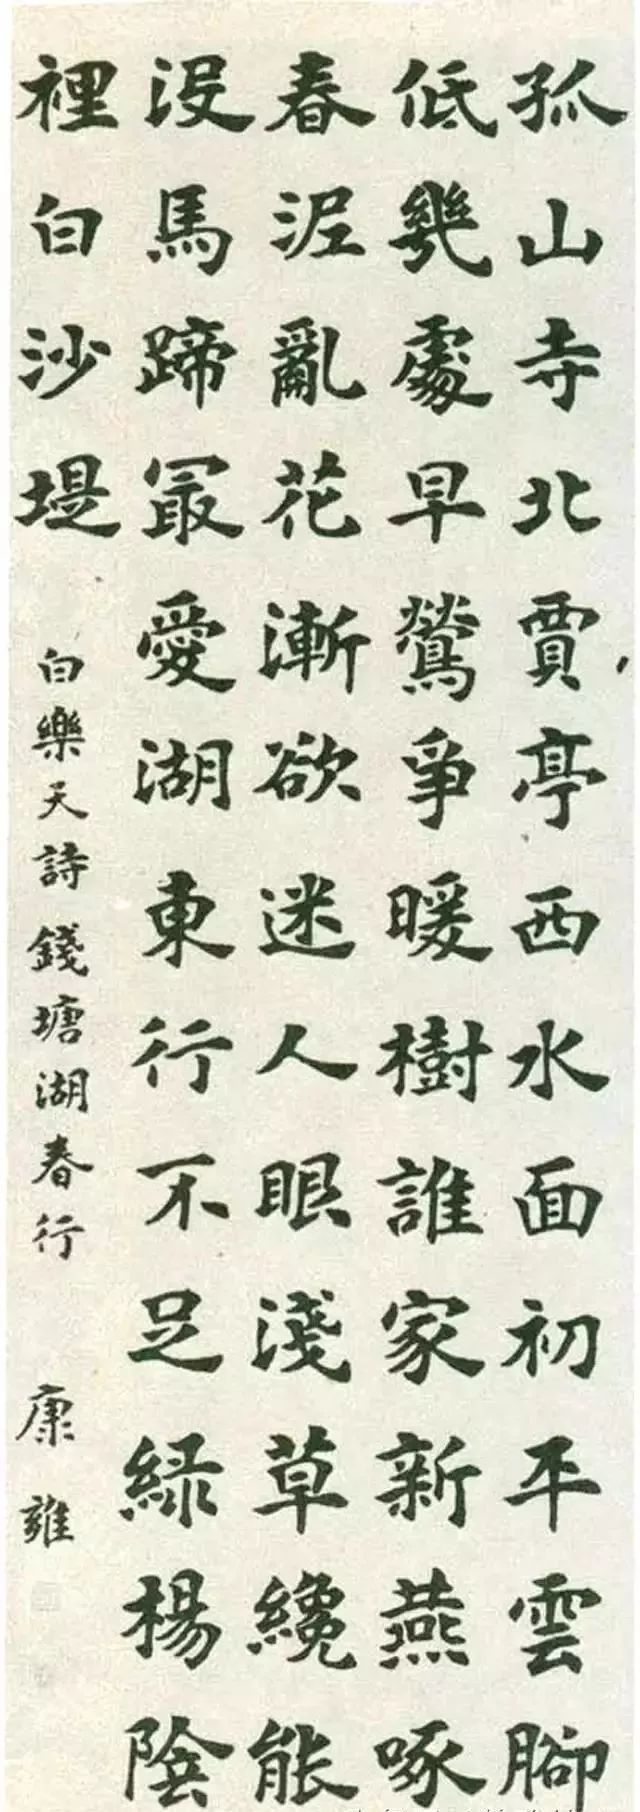 孤山寺北賈亭西水面初平雲腳
低幾處早鶯爭暖樹誰家新燕啄
春泥亂花漸欲迷人眼淺草纔能
沒馬蹄冣愛湖東行不足綠楊陰
裡白沙堤
白樂天詩錢塘湖春行
康雍